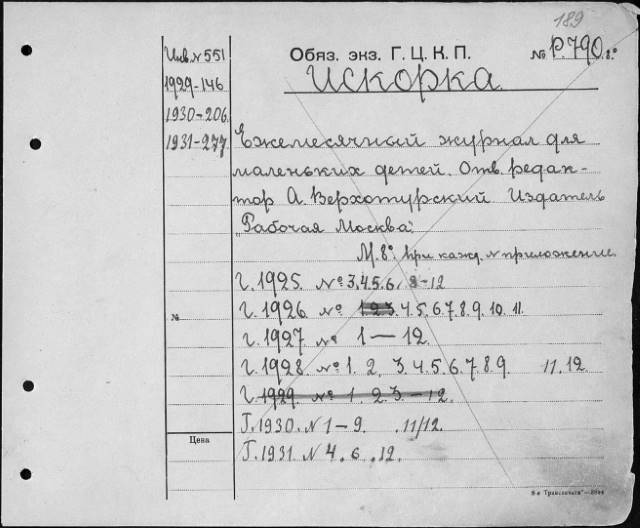 189
Инв. № 551
Обяз. экз. Г. Ц. К. П.
№ Р. 790. 8°
1929-146
Искорка
1930-206.
1931-277
Ежемесячный журнал для
маленьких детей. Отв. редак-
тор А. Верхотурский Издатель
"Рабочая Москва".
М. 8°. при кажд. № приложение.
Г. 1925. № 3.4.5.6. 8-12
Г. 1926. № 1.2.3. 4.5.6.7.8.9. 10. 11.
№
Г. 1927. № 1 — 12.
Г. 1928. № 1. 2. 3. 4. 5. 6. 7. 8. 9 11. 12.
Г. 1929. № 1. 2. 3. — 12.
Г. 1930. N 1-9. .11/12.
Цена
Г. 1931. N 4. 6. .12.